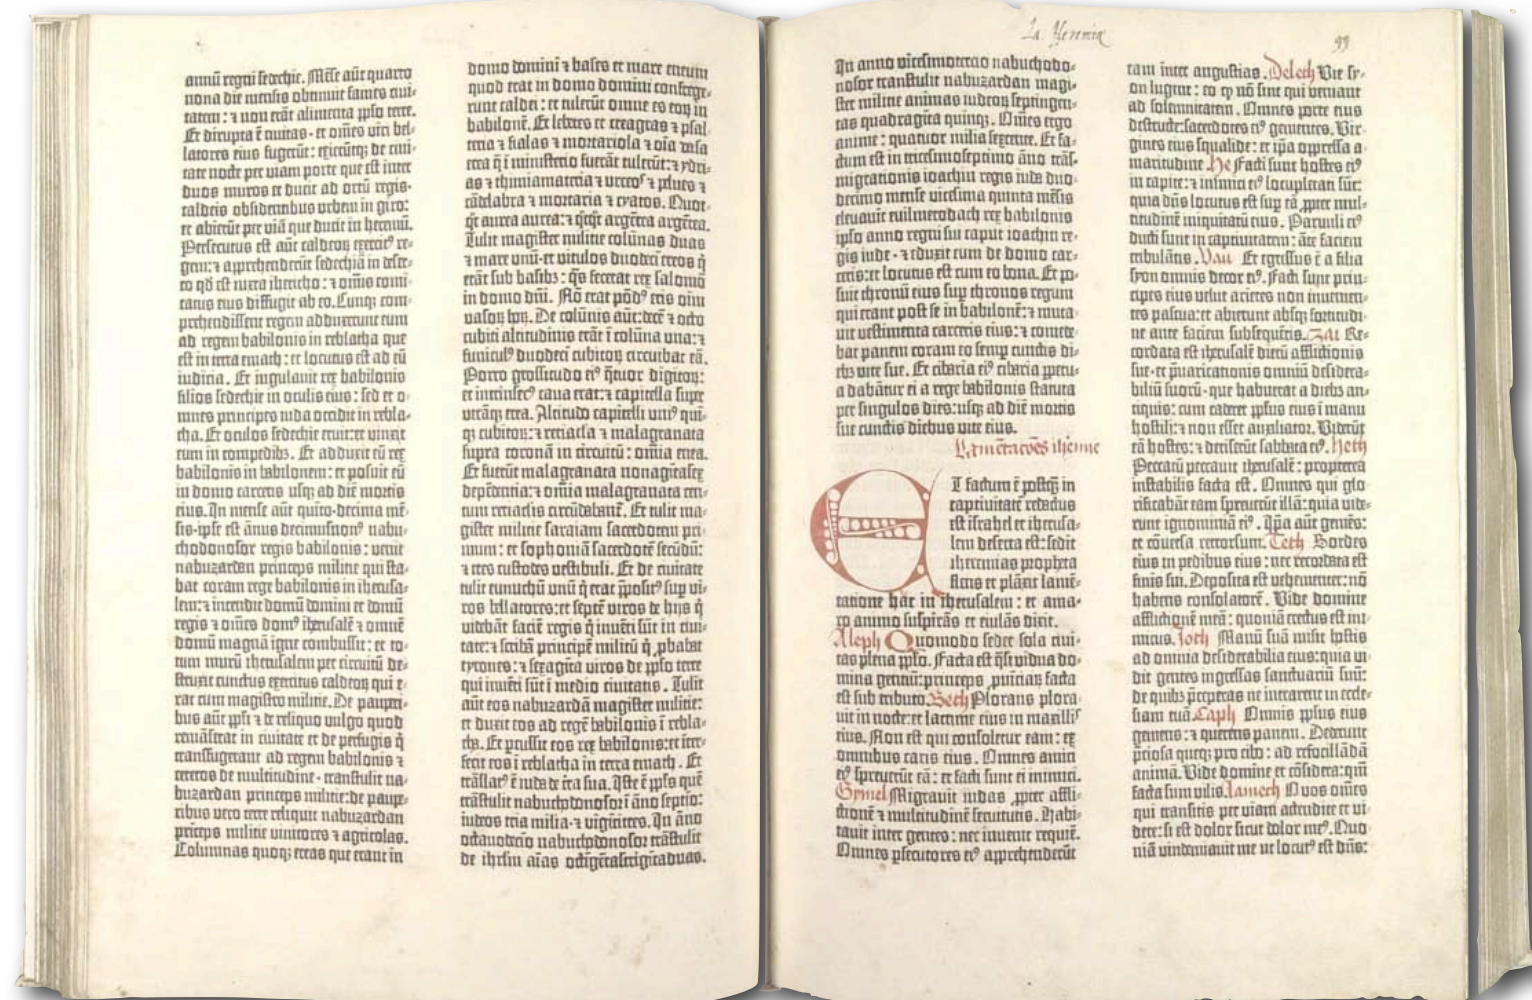 annū regni sedechie. Mēse aūt quarto
nona die mensis obtinuit fames ciui-
tatem: ⁊ non erāt alimenta pplo terre.
Et dirupta ē ciuitas · et omēs viri bel-
latores eius fugerūt: exierūtq; de ciui-
tate nocte per viam porte que est inter
duos muros et ducit ad ortū regis·
caldeis obsidentibus urbem in giro:
et abierūt per viā que ducit in heremū.
Persecutus est aūt caldeoꝝ exercitꝰ re-
gem: ⁊ apprehenderūt sedechiā in deser-
to qd est iuxta ihericho: ⁊ omīs comi-
tatus eius diffugit ab eo. Cunqꝫ com-
prehendissent regem adduxerunt eum
ad regem babilonis in reblatha que
est in terra emath: et locutus est ad eū
iudicia. Et iugulauit rex babilonis
filios sedechie in oculis eius: sed et o-
mnes principes iuda occidit in rebla-
tha. Et oculos sedechie eruit: et vinxit
eum in compedibꝫ. Et adduxit eū rex
babilonis in babilonem: et posuit eū
in domo carceris usqꝫ ad diē mortis
eius. In mense aūt quīto · decima mē-
sis · ipse est ānus decimusnonꝰ nabu-
chodonosor regis babilonis: venit
nabuzardan princeps milicie qui sta-
bat coram rege babilonis in iherusa-
lem: ⁊ incendit domū domini et domū
regis ⁊ omēs domꝰ iherusalē ⁊ omnē
domū magnā igne combussit: et to-
tum murū iherusalem per circuitū de-
struxit cunctus exercitus caldeoꝝ qui e-
rat cum magistro milicie. De pauperi-
bus aūt ppli ⁊ de reliquo vulgo quod
remāserat in ciuitate et de perfugis q̄
transfugerant ad regem babilonis ⁊
ceteros de multitudine · transtulit na-
buzardan princeps milicie: de paupe-
ribus vero terre reliquit nabuzardan
prīceps milicie vinitores ⁊ agricolas.
Columnas quoqꝫ ereas que erant in
domo domini ⁊ bases et mare eneum
quod erat in domo domini confrege-
runt caldei: et tulerūt omne es eoꝝ in
babilonē. Et lebetes et creagras ⁊ psal-
teria ⁊ fialas ⁊ mortariola ⁊ oīa vasa
erea q̄ ī ministerio fuerāt tulerūt: ⁊ ydri-
as ⁊ thimiamateria ⁊ vrceos ⁊ pelues ⁊
cādelabra ⁊ mortaria ⁊ cyatos. Quot-
q̄t aurea aurea: ⁊ q̄tq̄t argētea argētea.
Tulit magister milicie colūnas duas
⁊ mare unū · et vitulos duodeci ereos q̄
erāt sub basibꝫ: q̄s fecerat rex salomō
in domo dn̄i. Nō erat pōdꝰ eris oīm
vasoꝝ hoꝝ. De colūnis aūt: decē ⁊ octo
cubiti altitudinis erāt ī colūna una: ⁊
funiculꝰ duodeci cubitoꝝ circuibat eā.
Porro grossitudo eiꝰ q̄tuor digitoꝝ:
et intrinsecꝰ caua erat: ⁊ capitella supr
utrāqꝫ erea. Altitudo capitelli uniꝰ quī-
qꝫ cubitoꝝ: ⁊ reciacla ⁊ malagranata
supra coronā in circuitū: omīa enea.
Et fuerūt malagranata nonagītasex
depēdentia: ⁊ omīa malagranata cen-
tum reciaclis circūdabanē. Et tulit ma-
gister milicie saraiam sacerdotem pri-
mum: et sophoniā sacerdotē secūdū:
⁊ tres custodes vestibuli. Et de ciuitate
tulit eunuchū unū q̄ erat ppositꝰ sup vi-
ros bellatores: et septē viros de hijs q̄
videbāt faciē regis q̄ inuēti sūt in ciui-
tate: ⁊ scribā principē militū q̄ pbabat
tyrones: ⁊ sexagīta viros de pplo terre
qui inuēti sūt ī medio ciuitatis. Tulit
aūt eos nabuzardā magister milicie:
et duxit eos ad regē babilonis ī rebla-
tha. Et percussit eos rex babilonis: et īter-
fecit eos ī reblatha in terra emath. Et
trāslatꝰ ē iuda de terra sua. Iste ē pplꝰ quē
trāstulit nabuchodonosor ī āno septīo:
iudeos tria milia · ⁊ vigītitres. In āno
octauodecīo nabuchodonosor trāstulit
de ihrlm aīas octīgētastrīgītaduas.
La. Jeremiæ
99
In anno vicesimotercio nabuchodo-
nosor transtulit nabuzardan magi-
ster milicie animas iudeoꝝ septingen-
tas quadragīta quinqꝫ. Omēs ergo
anime: quatuor milia sexcente. Et fa-
ctum est in tricesimoseptimo āno trās-
migrationis ioachin regis iuda duo-
decimo mense vicesima quinta mēsis
eleuauit euilmerodach rex babilonis
ipso anno regni sui caput ioachin re-
gis iude · ⁊ eduxit eum de domo car-
ceris: et locutus est cum eo bona. Et po-
suit thronū eius supr thronos regum
qui erant post se in babilonē: ⁊ muta-
uit vestimenta carceris eius: ⁊ comede-
bat panem coram eo semp cunctis di-
ebꝫ vite sue. Et cibaria eiꝰ cibaria ppetu-
a dabātur ei a rege babilonis statuta
per singulos dies: usqꝫ ad diē mortis
sue cunctis diebus vite eius.
Lamētacōēs iheremie
ET factum ē postqꝫ in
captiuitatē redactus
est israhel et iherusa-
lem deserta est: sedit
iheremias propheta
flens et plāxit lamē-
tatione hac in iherusalem: et ama-
ro animo suspirās et eiulās dixit.
Aleph Quomodo sedet sola ciui-
tas plena pplo. Facta est q̄si vidua do-
mina gentiū: princeps puīciaꝝ facta
est sub tributo. Beth Plorans plora-
uit in nocte: et lacrime eius in maxillis
eius. Non est qui consoletur eam: ex
omnibus caris eius. Omnes amici
eiꝰ spreuerūt eā: et facti sunt ei inimici.
Gymel Migrauit iudas ppter affli-
ctionē ⁊ multitudinē seruitutis. Habi-
tauit inter gentes: nec inuenit requiē.
Omnes psecutores eiꝰ apprehenderūt
eam inter angustias. Deleth Vie sy-
on lugent: eo qꝫ nō sint qui veniant
ad solennitatem. Omnes porte eius
destructe: sacerdotes eiꝰ gementes. Vir-
gines eius squalide: et ip̄a oppressa a-
maritudine He Facti sunt hostes eiꝰ
in capite: ⁊ inimici eiꝰ locupletati sūt:
quia dn̄s locutus est sup eā ppter mul-
titudinē iniquitatū eius. Paruuli eiꝰ
ducti sunt in captiuitatem: āte faciem
tribulātis. Vau Et egressus ē a filia
syon omnis decor eiꝰ. Facti sunt prin-
cipes eius velut arietes non inuenien-
tes pascua: et abierunt absqꝫ fortitudi-
ne ante faciem subsequētis. Zai Re-
cordata est iherusalē dierū afflictionis
sue · et p̄uaricationis omniū desidera-
biliū suorū · que habuerat a diebꝫ an-
tiquis: cum caderet pplus eius ī manu
hostili: ⁊ non esset auxiliator. Viderūt
eā hostes: ⁊ deriserūt sabbata eiꝰ. Heth
Peccatū peccauit iherusalē: propterea
instabilis facta est. Omnes qui glo-
rificabāt eam spreuerūt illā: quia vide-
runt ignominiā eiꝰ. Ip̄a aūt gemēs:
et cōuersa retrorsum. Teth Sordes
eius in pedibus eius: nec recordata est
finis sui. Deposita est vehementer: nō
habens consolatorē. Vide domine
afflictionē meā: quoniā erectus est ini-
micus. Joth Manū suā misit hostis
ad omnia desiderabilia eius: quia vi-
dit gentes ingressas sanctuariū suū:
de quibꝫ p̄ceperas ne intrarent in eccle-
siam tuā. Caph Omnis pplus eius
gemens: ⁊ querens panem. Dederunt
p̄ciosa queqꝫ pro cibo: ad refocillādā
animā. Vide domine et cōsidera: qm̄
facta sum vilis. Lamech O vos omēs
qui transitis per viam attendite et vi-
dete: si est dolor sicut dolor meꝰ. Quo-
niā vindemiauit me ut locutꝰ est dn̄s: